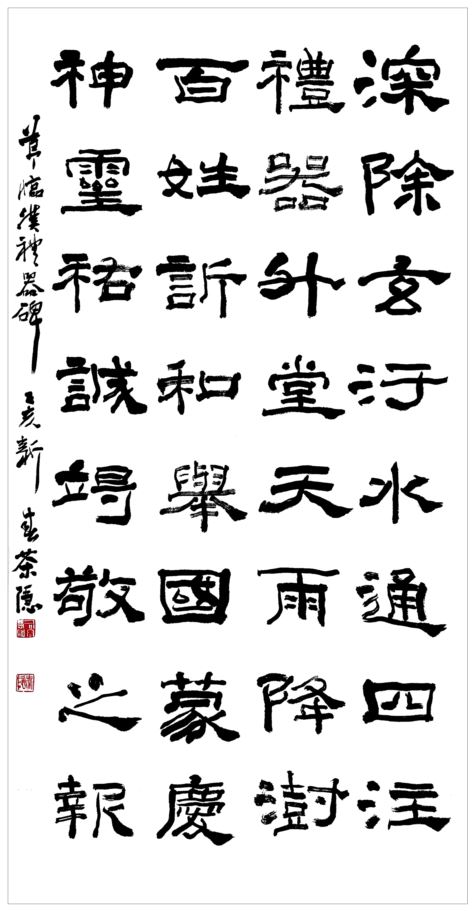 深除玄汙水通四注
禮器升堂天雨降澍
百姓訢和舉國蒙慶
神靈祐誠竭敬之報
節臨漢禮器碑 己亥新春茶隱